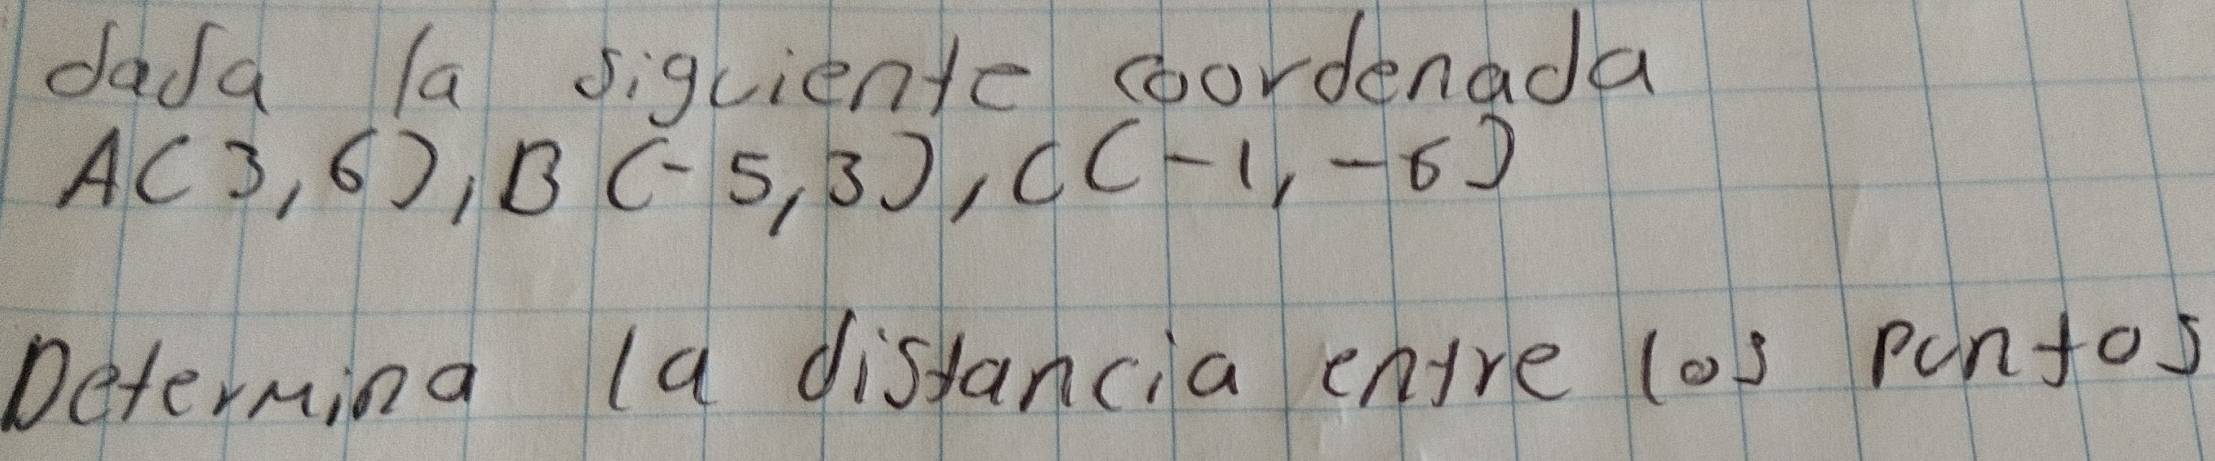 dada la siguiente coordenada
A(3,6), B(-5,3), C(-1,-6)
Determina la distancia entre los puntos